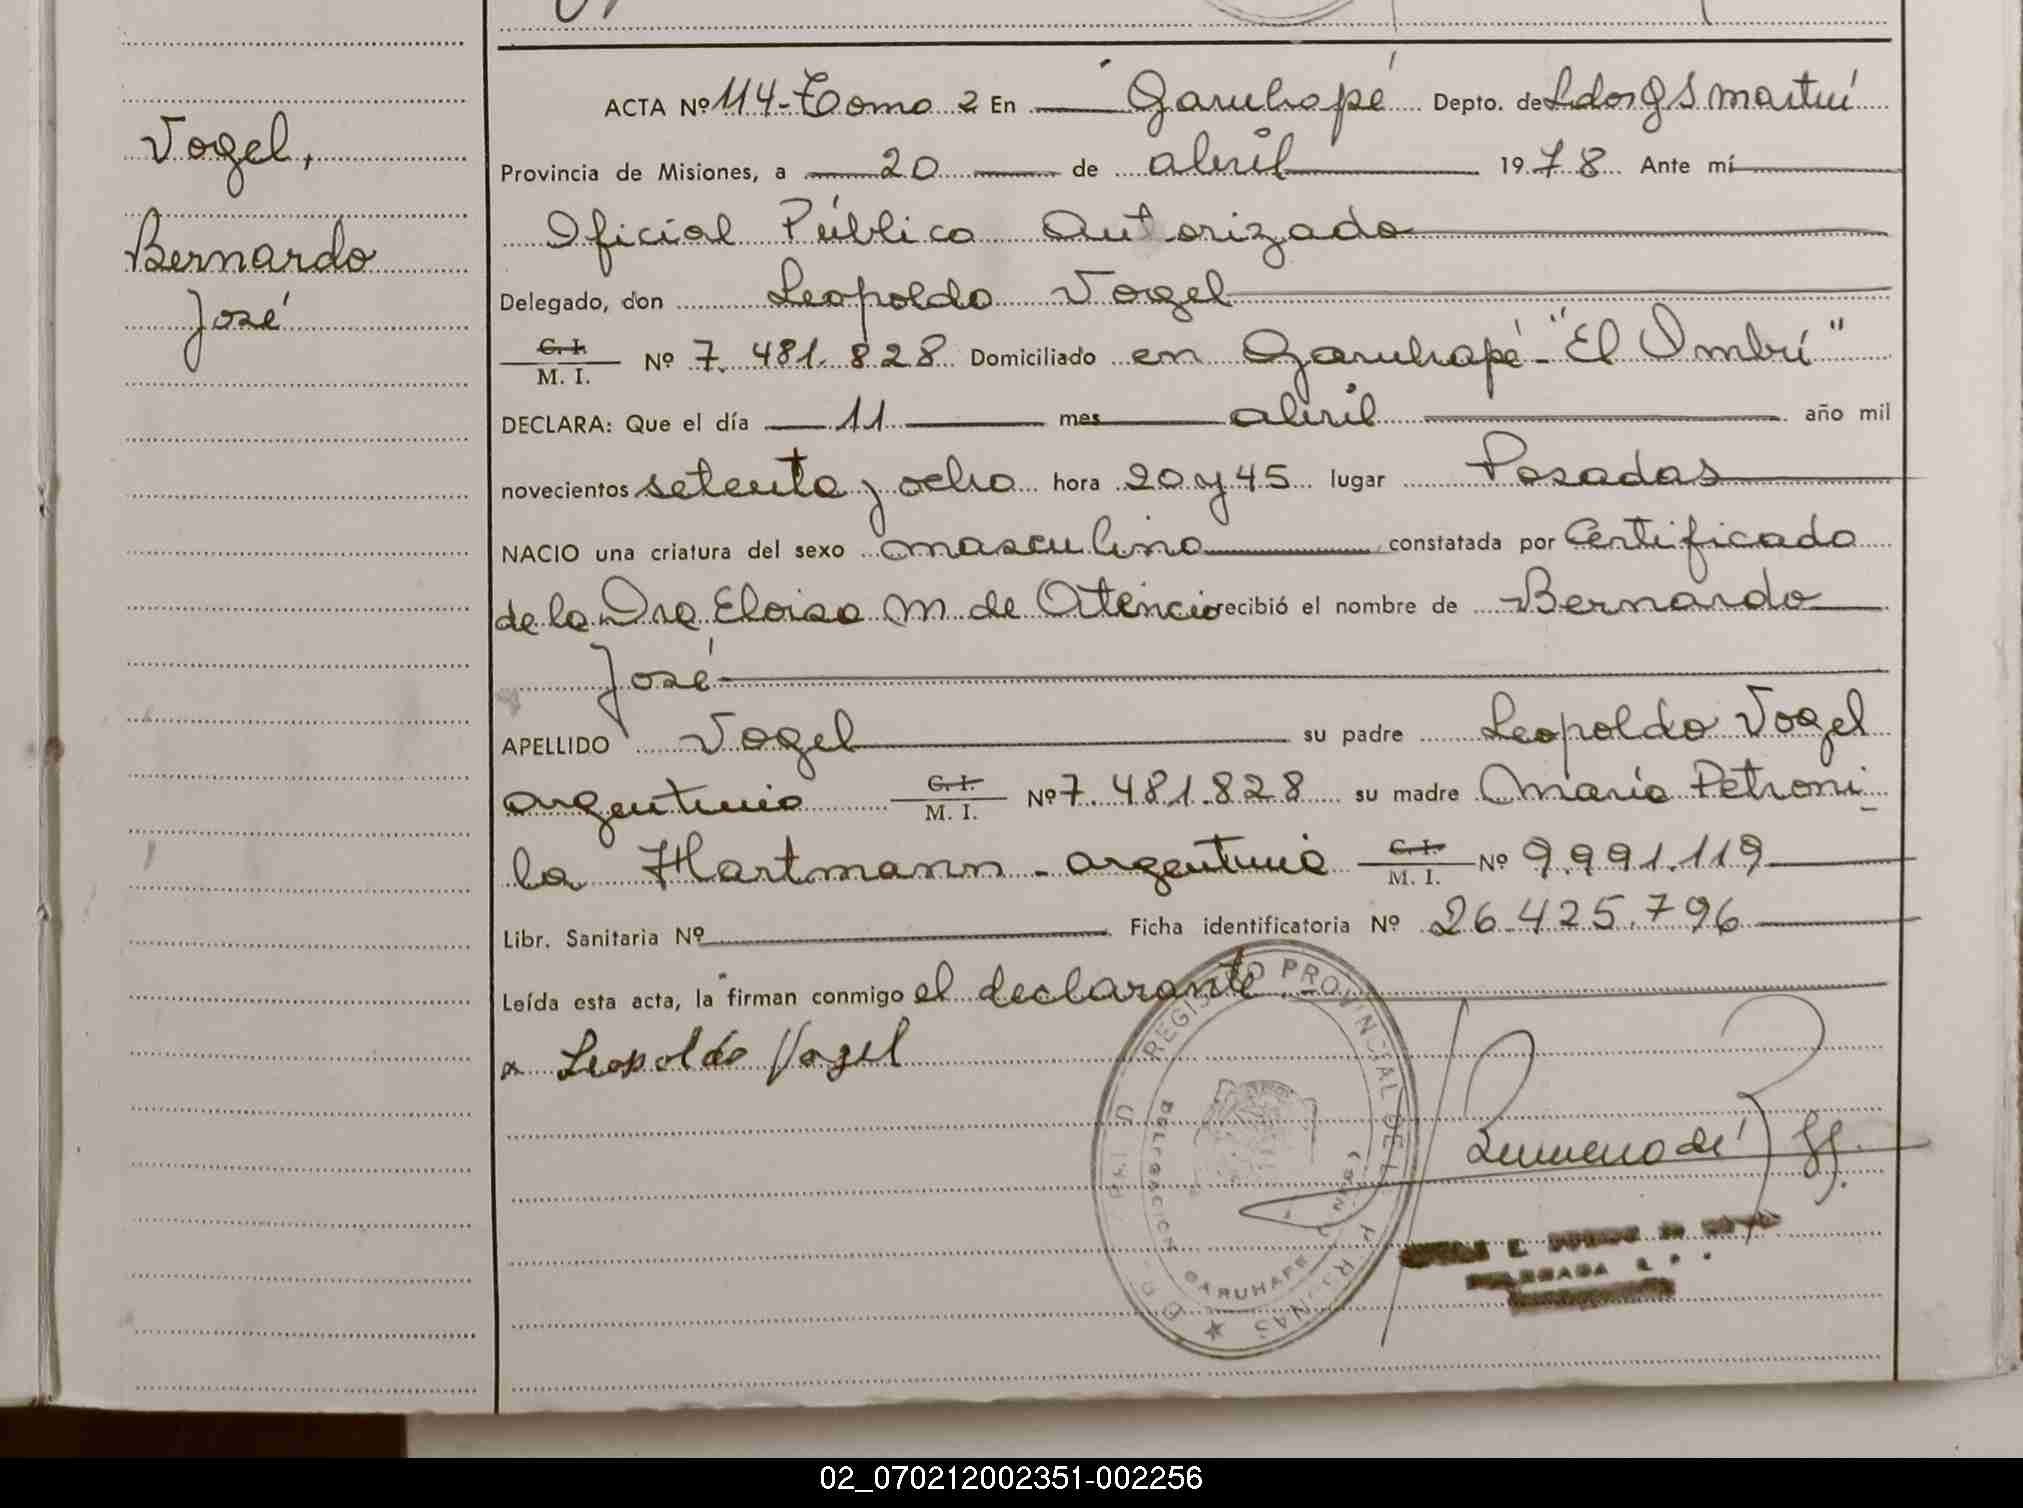 Vogel,
Bernardo
José
ACTA Nº 114-Tomo 2 En Garuhapé Depto. de Ldor G S Martín
Provincia de Misiones, a 20 de abril 1978 Ante mí
Oficial Público Autorizado
Delegado, don Leopoldo Vogel
C. I.
M. I. Nº 7.481.828 Domiciliado en Garuhapé - "El Ombú"
DECLARA: Que el día 11 mes abril año mil
novecientos setenta y ocho hora 20 y 45 lugar Posadas
NACIO una criatura del sexo masculino constatada por Certificado
de la Dra Eloisa M. de Atencio recibió el nombre de Bernardo
José
APELLIDO Vogel su padre Leopoldo Vogel
argentino C. I. M. I. Nº 7.481.828 su madre María Petroni
la Hartmann - argentina C. I. M. I. Nº 9.991.119
Libr. Sanitaria Nº Ficha identificatoria Nº 26.425.796
Leída esta acta, la firman conmigo el declarante.-
x Leopoldo Vogel
REGISTRO PROVINCIAL DE LAS PERSONAS
DELEGACION GARUHAPE
DELEGADA R. P.
02_070212002351-002256